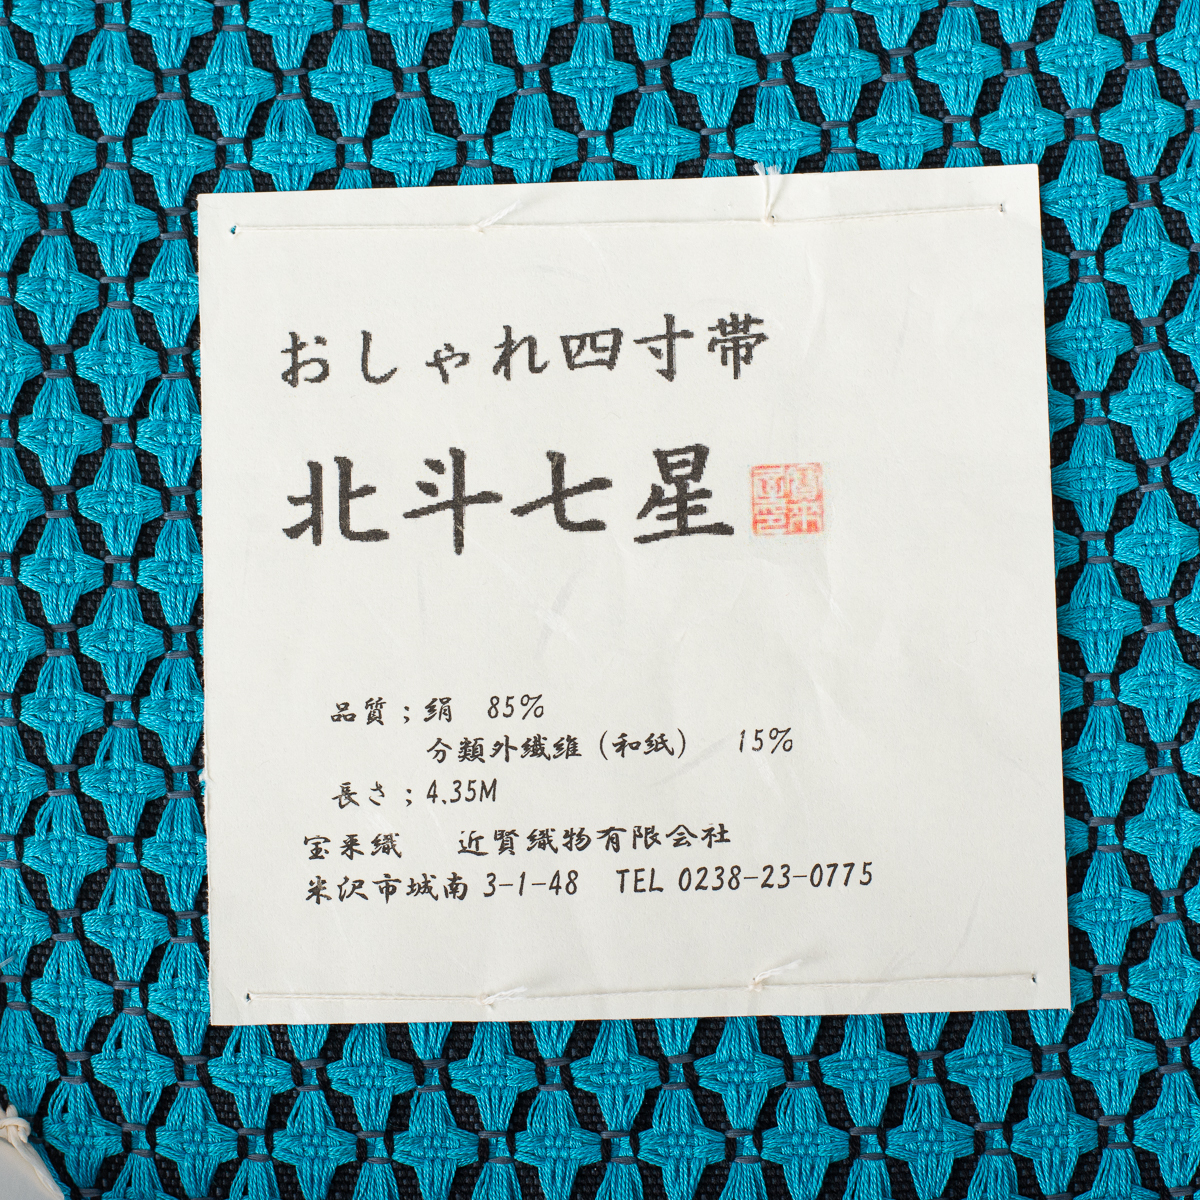 おしゃれ四寸帯
北斗七星
品質；絹　85%
分類外繊維（和紙）　15%
長さ；4.35M
宝来織　近賢織物有限会社
米沢市城南 3-1-48　TEL 0238-23-0775